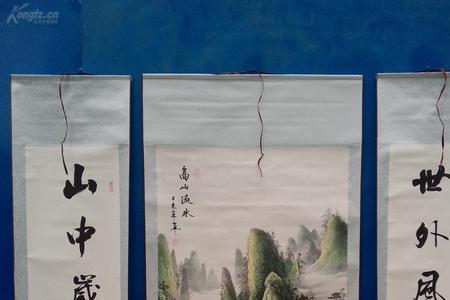 Kongfz.cn
高山流水
山中歲
世外風